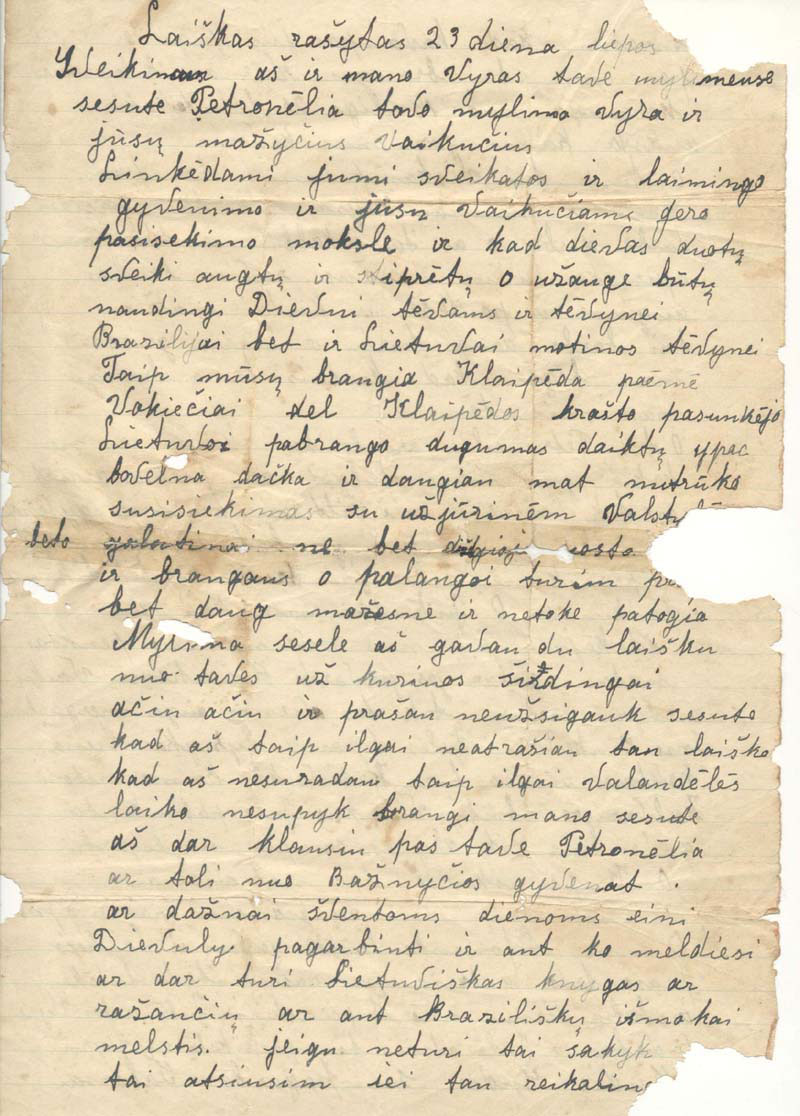 Laiškas rašytas 23 diena liepos
Sveikinam aš ir mano vyras tave
sesute Petronėlia tavo mylimo vyra ir
jūsų mažyčius vaikučius
Linkėdami jumi sveikatos ir laimingo
gyvenimo ir jūsų vaikučiams gero
pasisekimo moksle ir kad dievas duotų
sveiki augtų ir stiprėtų o užauge būtų
naudingi Dievui tėvams ir tėvynei
Brazilijai bet ir Lietuvai motinos tėvynei
Taip mūsų brangia Klaipėda paėmė
Vokiečiai del Klaipėdos krašto pasunkėjo
Lietuvoi pabrango dugumas daiktų ypac
bovelna dačka ir daugiau mat nutrūko
susisiekimas su užjūrinėm
beto ne bet
ir brangaus o palangoi turim
bet daug mažesne ir netoke patogia
sesele aš gavau du laišku
nuo taves už kuriuos širdingai
ačiu ačiu ir prašau neužsigauk sesute
kad aš taip ilgai neatrašiau tau laiško
kad aš nesuradau taip ilgai valandėlės
laiko nesupyk brangi mano sesute
aš dar klausiu pas tave Petronėlia
ar toli nuo Bažnyčios gyvenat.
ar dažnai šventoms dienoms eini
Dievuly pagarbinti ir ant ko meldiesi
ar dar turi Lietuviškas knygas ar
ražančių ar ant Braziliškų išmokai
melstis. jeigu neturi tai sakyk
tai atsiusim iei tau